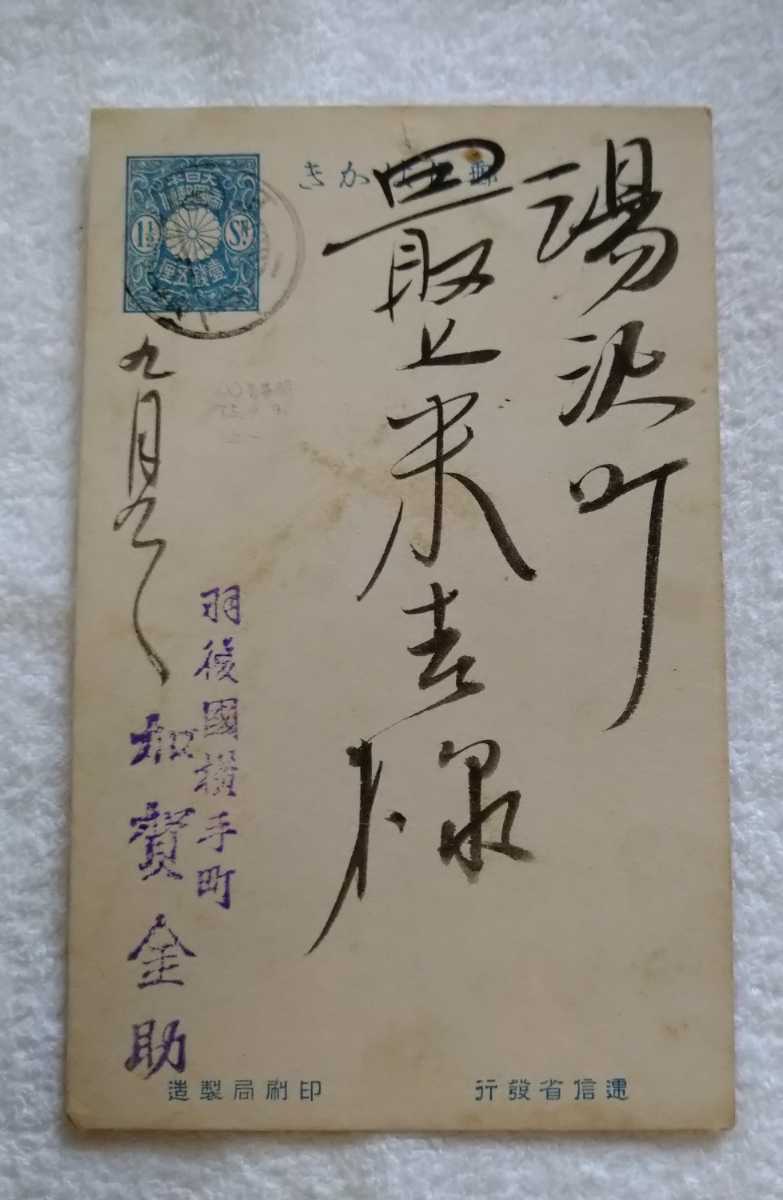 郵便はがき
大日本
帝國郵便
1½ Sn.
壹錢五厘
湯沢町
最上米吉様
九月
羽後國横手町
加賀金助
遞信省發行
印刷局製造